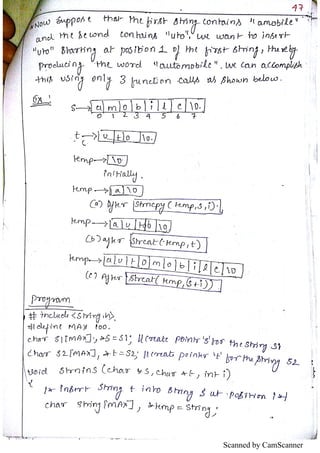 47
*Now Suppose that the first string contains "amobile"
and the second contains "uto". we want to insert
"uto" starting at position 1 of the first string, thereby
producing the word "automobile". we can accomplish
this using only 3 function calls as shown below.
Ex:-
s→ a m o b i l e \0.
0 1 2 3 4 5 6 7
t→ u t o \0.
temp→ \0
initially.
temp→ a \0
(a) After strncpy (temp,s,i).
temp→ a u t o \0
(b) after strcat (temp,t)
temp→ a u t o m o b i l e \0
(c) After strcat (temp,(s+i))
Program
# include <string.h>
# define MAX 100.
char s1[MAX], *s=s1; // create pointr 's' for the string s1
char s2[MAX], *t=s2; // creati pointer 't' for the string s2
void strnins (char *s, char *t, int i)
{
/* Insert string t into string s at position i */
char string[MAX], *temp = string;
Scanned by CamScanner